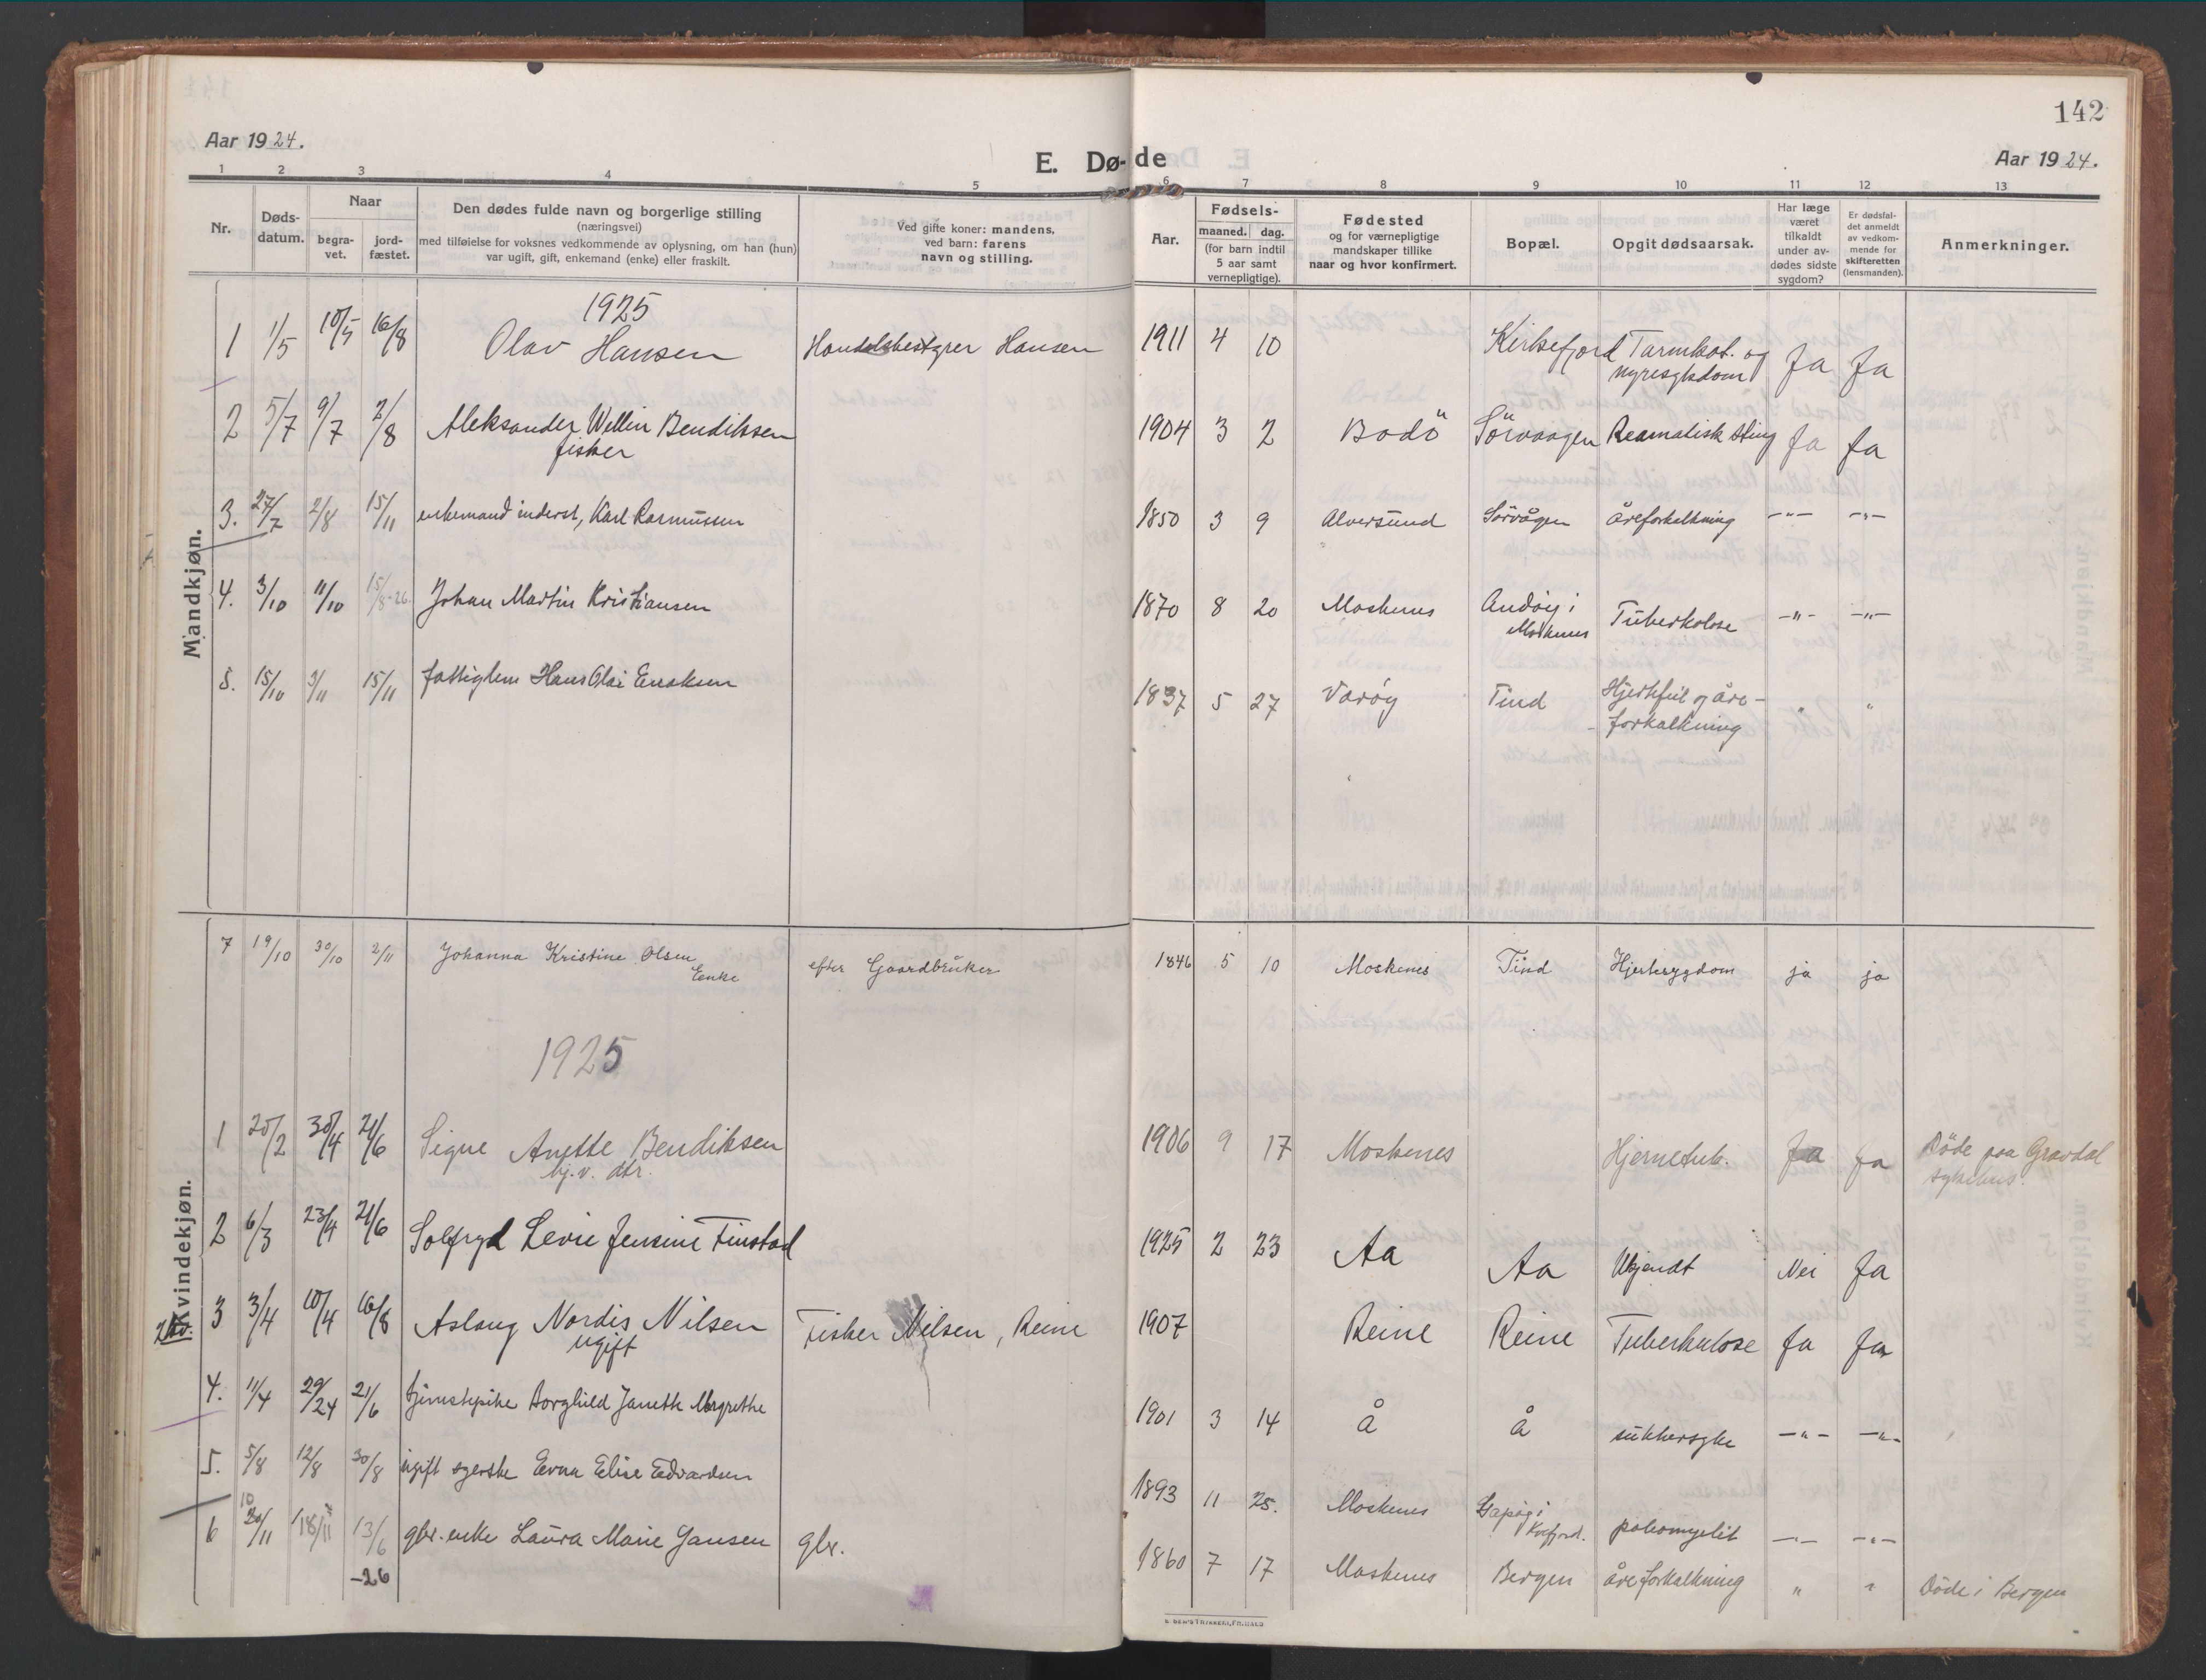 142
Aar 1924.
E. Dø-de
Aar 1924.
1 2 3 4 5 6 7 8 9 10 11 12 13
Nr.
Døds-
datum.
Naar
begra-
vet.
jord-
fæstet.
Den dødes fulde navn og borgerlige stilling
(næringsvei)
med tilføielse for voksnes vedkommende av oplysning, om han (hun)
var ugift, gift, enkemand (enke) eller fraskilt.
Ved gifte koner: mandens,
ved barn: farens
navn og stilling.
Aar.
Fødsels-
maaned. dag.
(for barn indtil
5 aar samt
vernepligtige).
Fødested
og for værnepligtige
mandskaper tillike
naar og hvor konfirmert.
Bopæl.
Opgit dødsaarsak.
Har læge
været
tilkaldt
under av-
dødes sidste
sygdom?
Er dødsfal-
det anmeldt
av vedkom-
mende for
skifteretten
(lensmanden).
Anmerkninger.
Mandkjøn.
1925
1 1/5 10/5 16/8 Olav Hansen Handelsbestyrer Hansen 1911 4 10 Kirkefjord Tarmkat. og
nyresykdom Ja Ja
2 5/7 9/7 2/8 Aleksander Wellin Bendiksen 1904 3 2 Bodö Sörvaagen Reamatisk sting Ja Ja
fisker
3. 27/7 2/8 15/11 enkemand inderst, Karl Rasmussen 1850 3 9 Alversund Sörvågen åreforkalkning -"- -"-
4. 3/10 11/10 15/8-26. Johan Martin Kristiansen 1870 8 20 Moskenes Andöy i
Moskenes Tuberkolose -"- -"-
5. 15/10 3/11 15/11 fattiglem Hans Olai Enoksen 1837 5 27 Varöy Tind Hjertefeil og åre-
forkalkning " "
Kvindekjøn.
7 19/10 30/10 2/11 Johanna Kristine Olsen efter Gaardbruker 1846 5 10 Moskenes Tind Hjertesygdom ja ja
Enke
1925
1 20/2 30/4 21/6 Signe Anette Bendiksen 1906 9 17 Moskenes Hjernetub. Ja Ja Döde paa Gravdal
hj.v. dtr. sykehus.
2 6/3 23/4 21/6 Solfryd Levie Jensine Finstad 1925 2 23 Aa Aa Ukjendt Nei Ja
3 3/4 10/4 16/8 Aslaug Nordis Nilsen Fisker Nilsen, Reine 1907 Reine Reine Tuberkulose Ja Ja
ugift
4. 11/4 29/24 21/6 tjenestepike Borghild Janette Margrethe 1901 3 14 Å Å sukkersyke -"- -"-
5. 5/8 12/8 30/8 ugift syerske Erna Elise Edvardsen 1893 11 25. Moskenes Kvefjord. poliomyelit -"- -"-
6 10 18/11 13/6 -26 gbr. enke Laura Marie Jansen gbr. 1860 7 17 Moskenes Bergen åreforkalkning " " Döde i Bergen